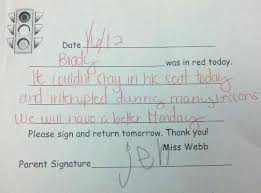 Date 1/6/12
Brady was in red today.
It couldnt stay in his seat today
and interupted during many lessons
We will have a better Monday
Please sign and return tomorrow. Thank you!
Miss Webb
Parent Signature